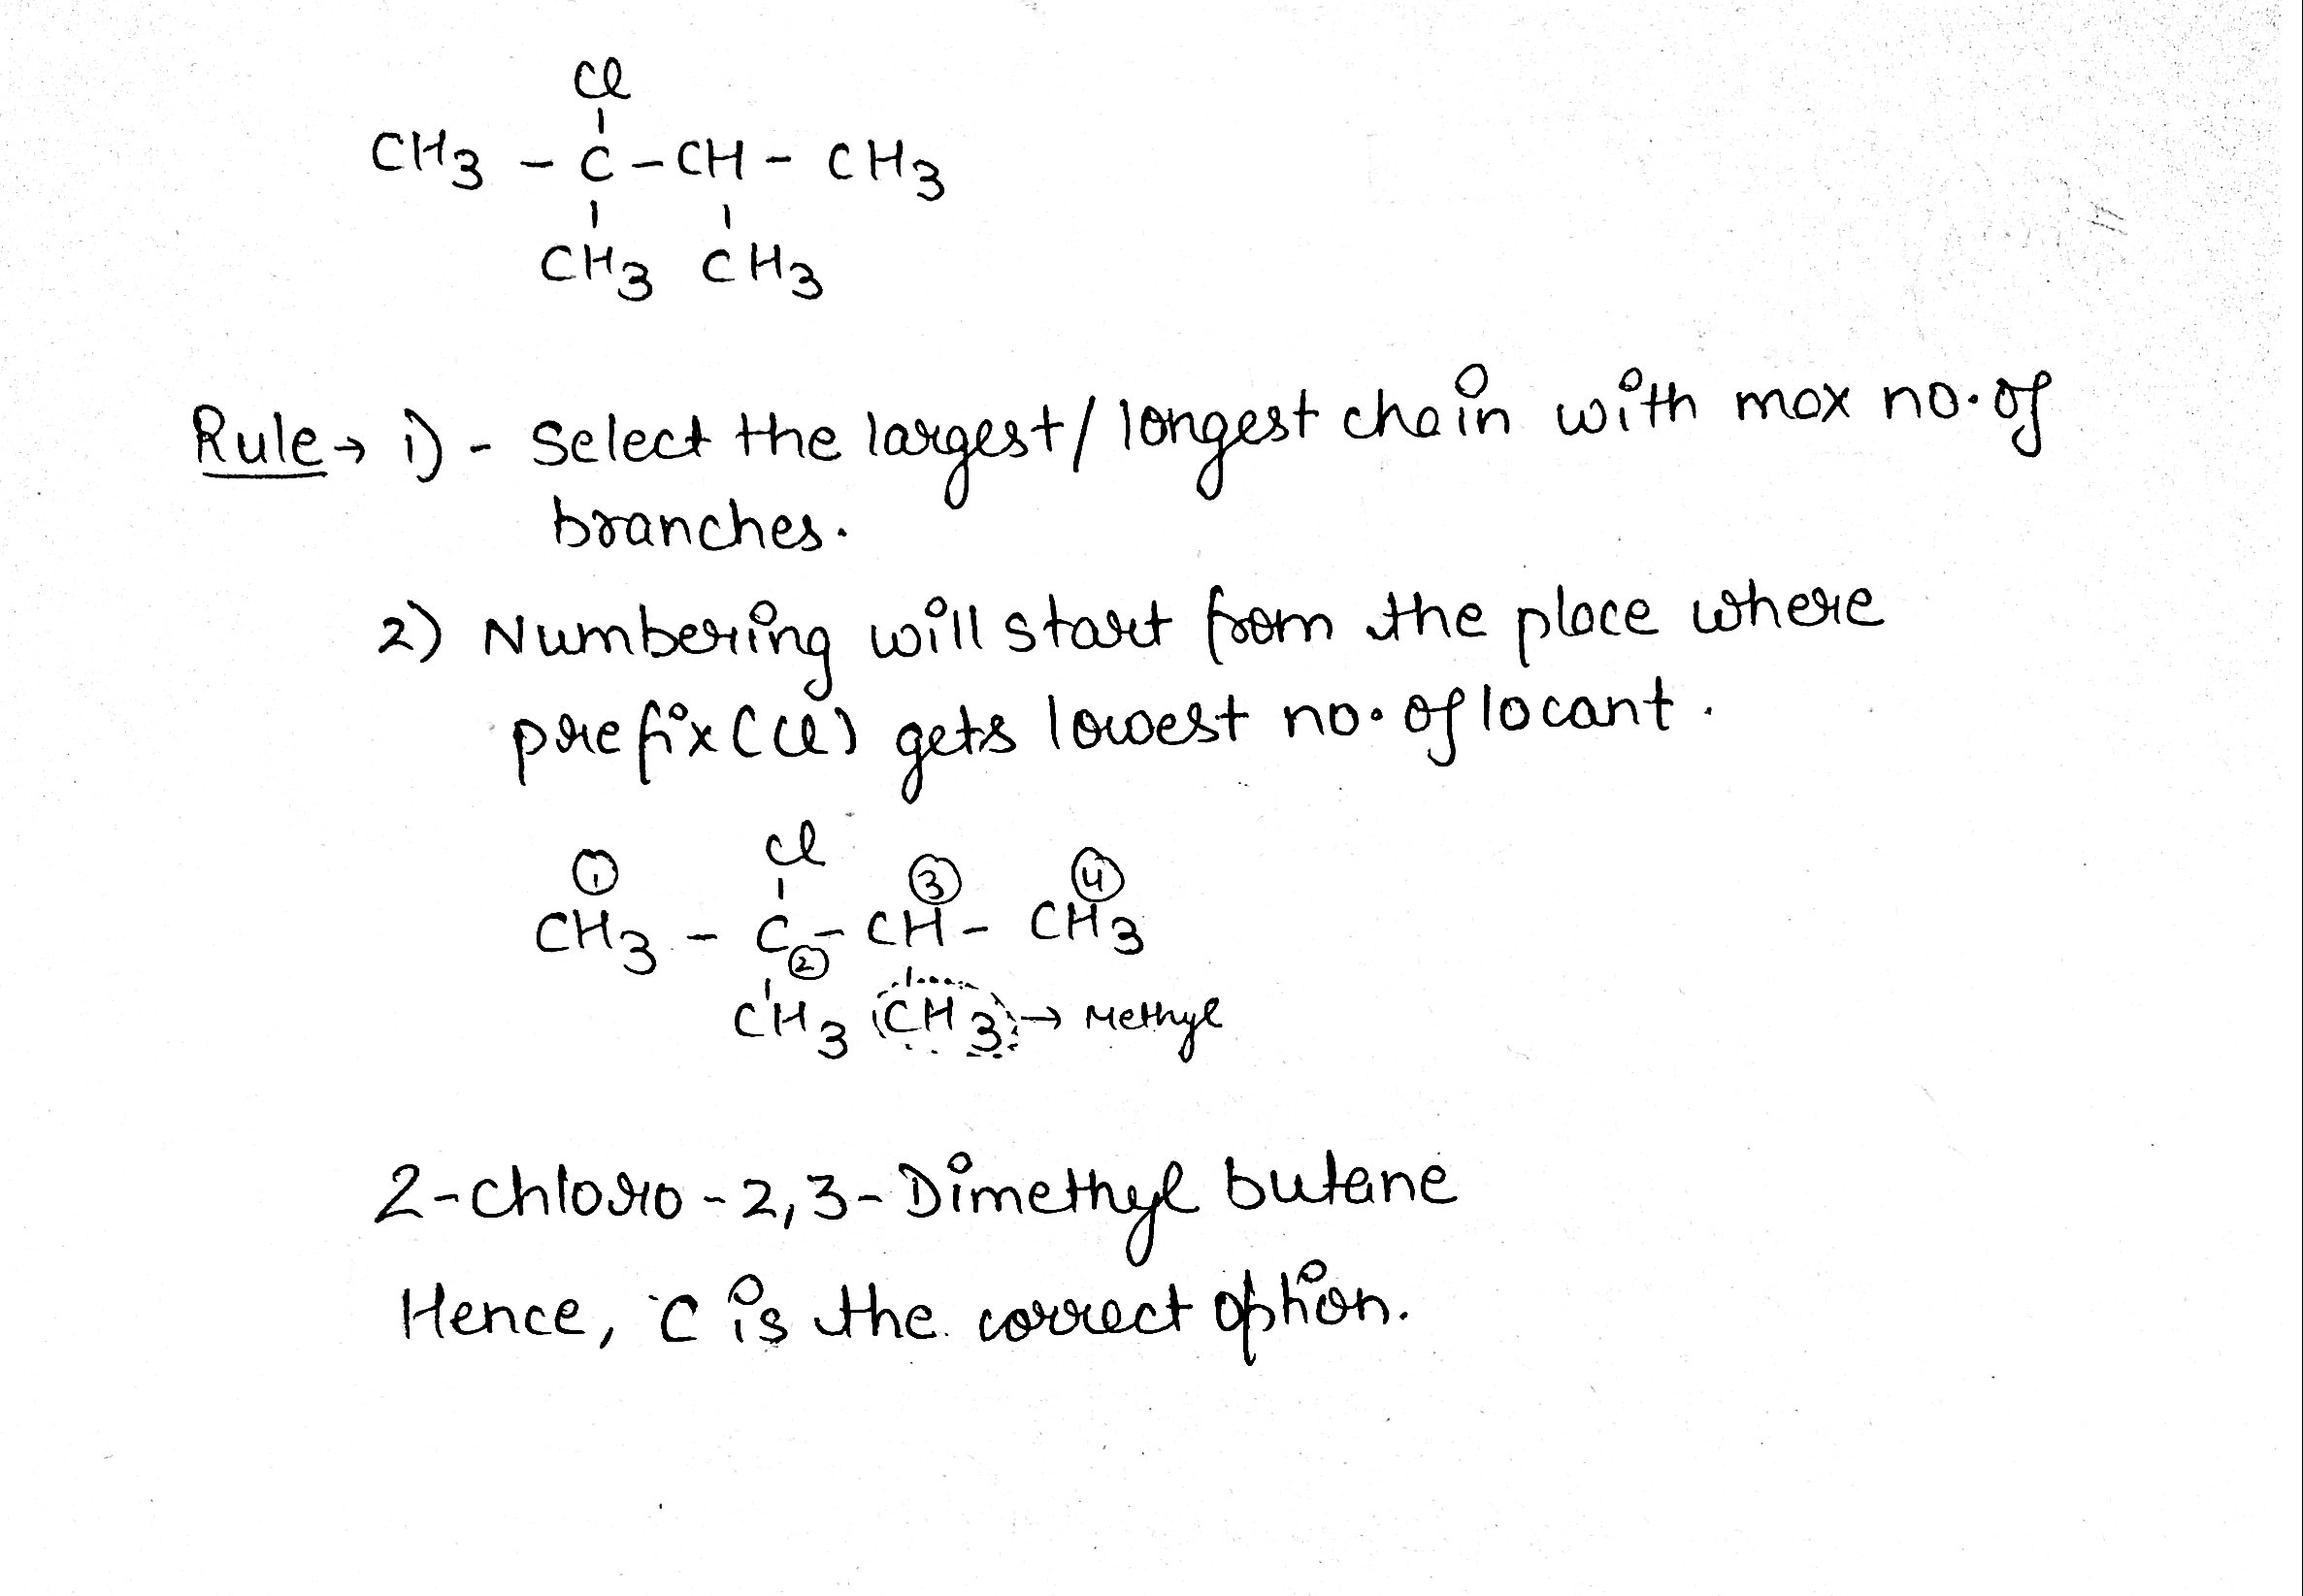 Cl
CH3 - C - CH - CH3
CH3 CH3
Rule → 1) - Select the largest/longest chain with max no. of
branches.
2) Numbering will start from the place where
prefix (Cl) gets lowest no. of locant.
Cl
1 3 4
CH3 - C - CH - CH3
2
CH3 CH3 → Methyl
2-chloro-2,3-Dimethyl butane
Hence, C is the correct option.